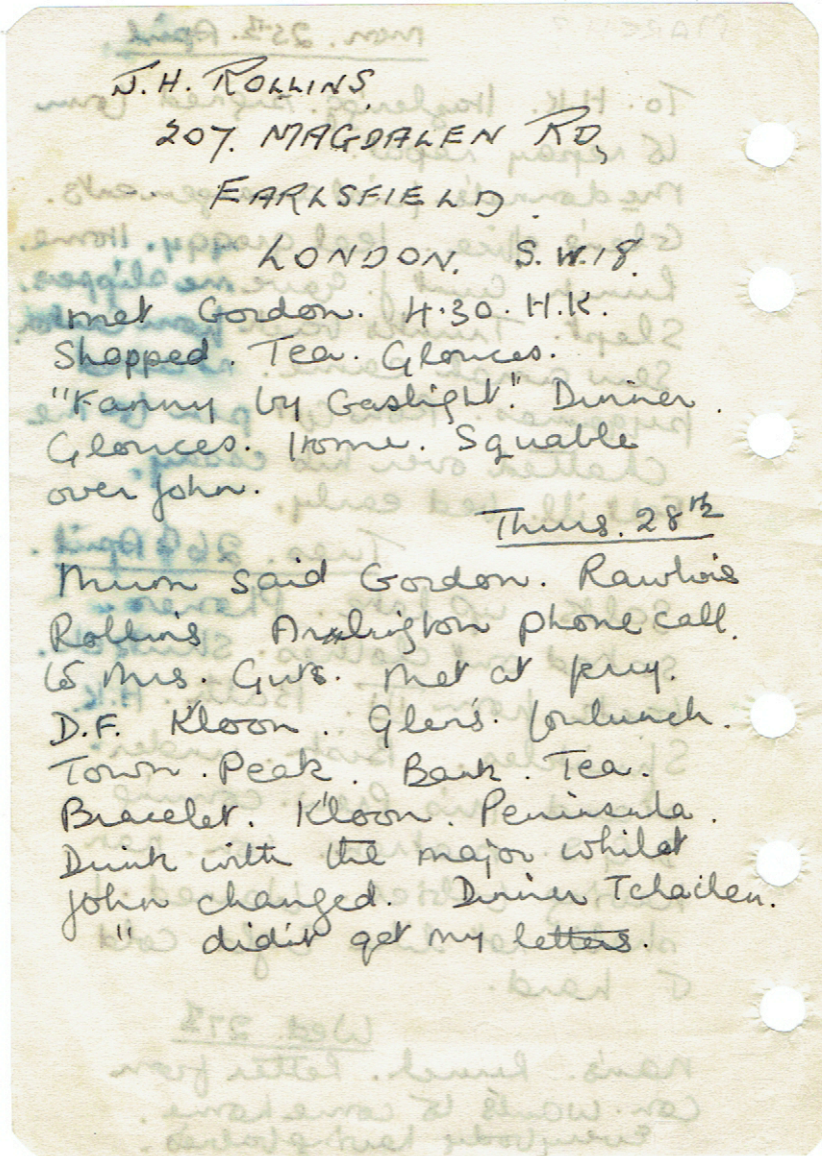 J.H. ROLLINS
207. MAGDALEN RD,
EARLSFIELD.
LONDON. S.W.18.
met Gordon. 4.30. H.K.
Shopped. Tea. Glouces.
"Fanny by Gaslight." Dinner.
Glouces. Home. Squable
over John.
Thurs. 28th
Mum said Gordon.
Rollins phone call.
to Mrs. Guts. met at ferry.
D.F. K'loon. Glen's. for lunch.
Town. Peak. Bank. Tea.
Bracelet. K'loon. Peninsula.
Drink with the major whilst
John changed. Dinner
" didn't get my letters.